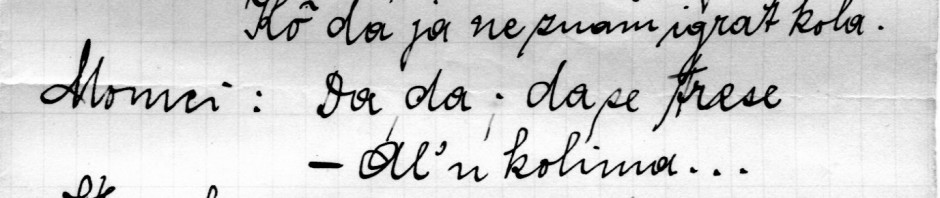 Kõ da ja ne znam igrat kola.
Momci: Da, da, da se trese
- Al' u kolima...